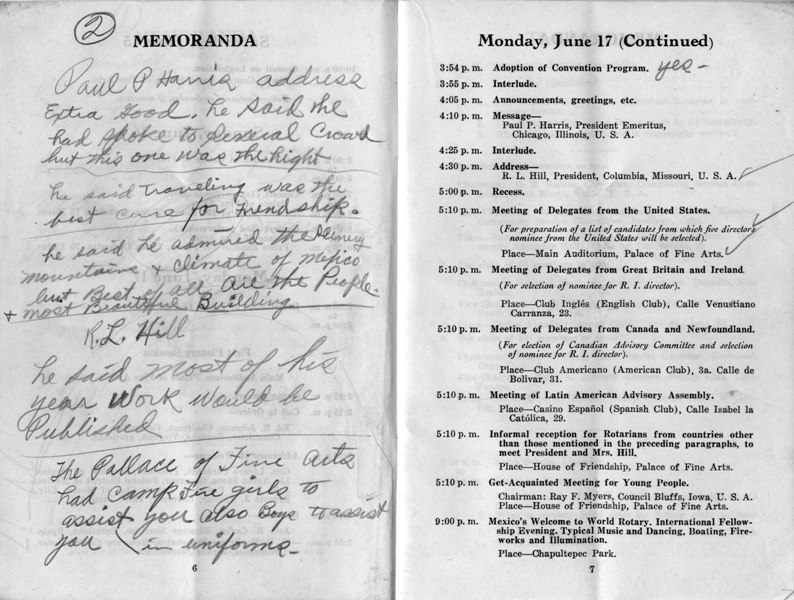 2
MEMORANDA
Paul P Harris address
Extra Good. he said he
had spoke to several Crowd
but this one was the hight
he said traveling was the
best cure for Friendship.
he said he admired the
mountains & climate of Mexico
but Best of all are the People.
& most Beautiful Building
R.L. Hill
he said most of his
year work would be
Published
The Pallace of Fine Arts
had camp fire girls to
assist you also Boys to assist
you (in uniforms-
6
Monday, June 17 (Continued)
3:54 p. m. Adoption of Convention Program. yes-
3:55 p. m. Interlude.
4:05 p. m. Announcements, greetings, etc.
4:10 p. m. Message—
Paul P. Harris, President Emeritus,
Chicago, Illinois, U. S. A.
4:25 p. m. Interlude.
4:30 p. m. Address—
R. L. Hill, President, Columbia, Missouri, U. S. A.
5:00 p. m. Recess.
5:10 p. m. Meeting of Delegates from the United States.
(For preparation of a list of candidates from which five directors
nominee from the United States will be selected).
Place—Main Auditorium, Palace of Fine Arts.
5:10 p. m. Meeting of Delegates from Great Britain and Ireland.
(For selection of nominee for R. I. director).
Place—Club Inglés (English Club), Calle Venustiano
Carranza, 23.
5:10 p. m. Meeting of Delegates from Canada and Newfoundland.
(For election of Canadian Advisory Committee and selection
of nominee for R. I. director).
Place—Club Americano (American Club), 3a. Calle de
Bolivar, 31.
5:10 p. m. Meeting of Latin American Advisory Assembly.
Place—Casino Español (Spanish Club), Calle Isabel la
Católica, 29.
5:10 p. m. Informal reception for Rotarians from countries other
than those mentioned in the preceding paragraphs, to
meet President and Mrs. Hill.
Place—House of Friendship, Palace of Fine Arts.
5:10 p. m. Get-Acquainted Meeting for Young People.
Chairman: Ray F. Myers, Council Bluffs, Iowa, U. S. A.
Place—House of Friendship, Palace of Fine Arts.
9:00 p. m. Mexico's Welcome to World Rotary. International Fellow-
ship Evening. Typical Music and Dancing, Boating, Fire-
works and Illumination.
Place—Chapultepec Park.
7